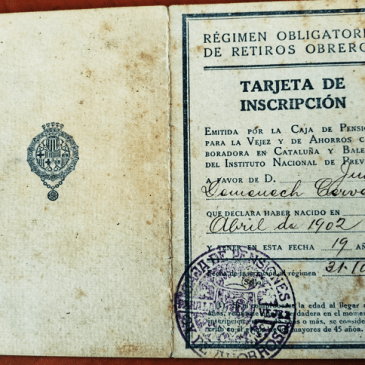 RÉGIMEN OBLIGATOR
DE RETIROS OBRERO
TARJETA DE
INSCRIPCIÓN
EMITIDA POR LA CAJA DE PENSI
PARA LA VEJEZ Y DE AHORROS C
BORADORA EN CATALUÑA Y BALE
DEL INSTITUTO NACIONAL DE PREV
A FAVOR DE D. Ju
Domenech Cerv
QUE DECLARA HABER NACIDO EN
Abril de 1902
Y EN ESTA FECHA 19 AÑ
31-10
la edad al llegar
años, en el momen
inscripción, o más, se conside
de mayores de 45 años.
CAJA DE PENSIONES
DE AHORROS